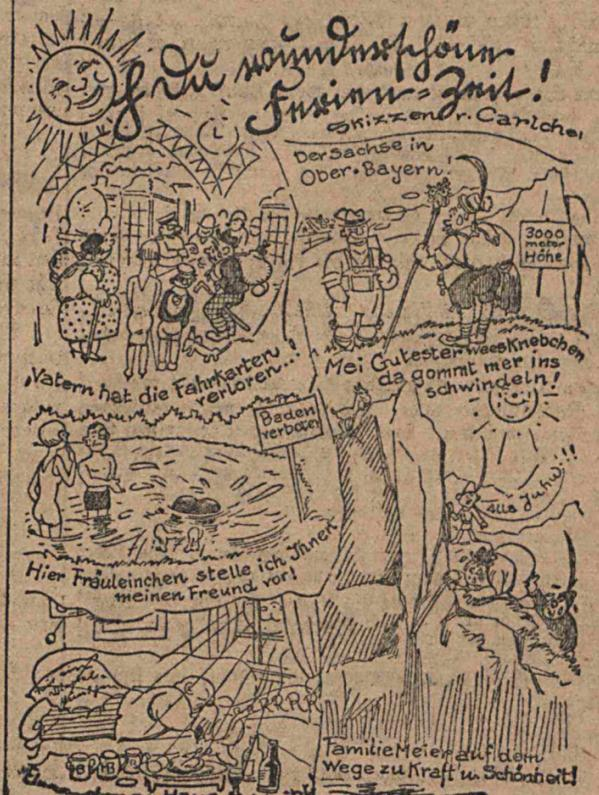 O Du wunderschöne
Ferien-Zeit!
Skizzen v. Carlchen
Der Sachse in
Ober-Bayern!
3000
meter
Höhe
Vatern hat die Fahrkarten
verloren...!
Mei Gutester wees Knebchen
da gommt mer ins
schwindeln!
Baden
verboten
Alle Juhu!!!
Hier Fräuleinchen stelle ich Ihnen
meinen Freund vor!
RRRRR
HB HB
Familie Meier auf dem
Wege zu Kraft u. Schönheit!